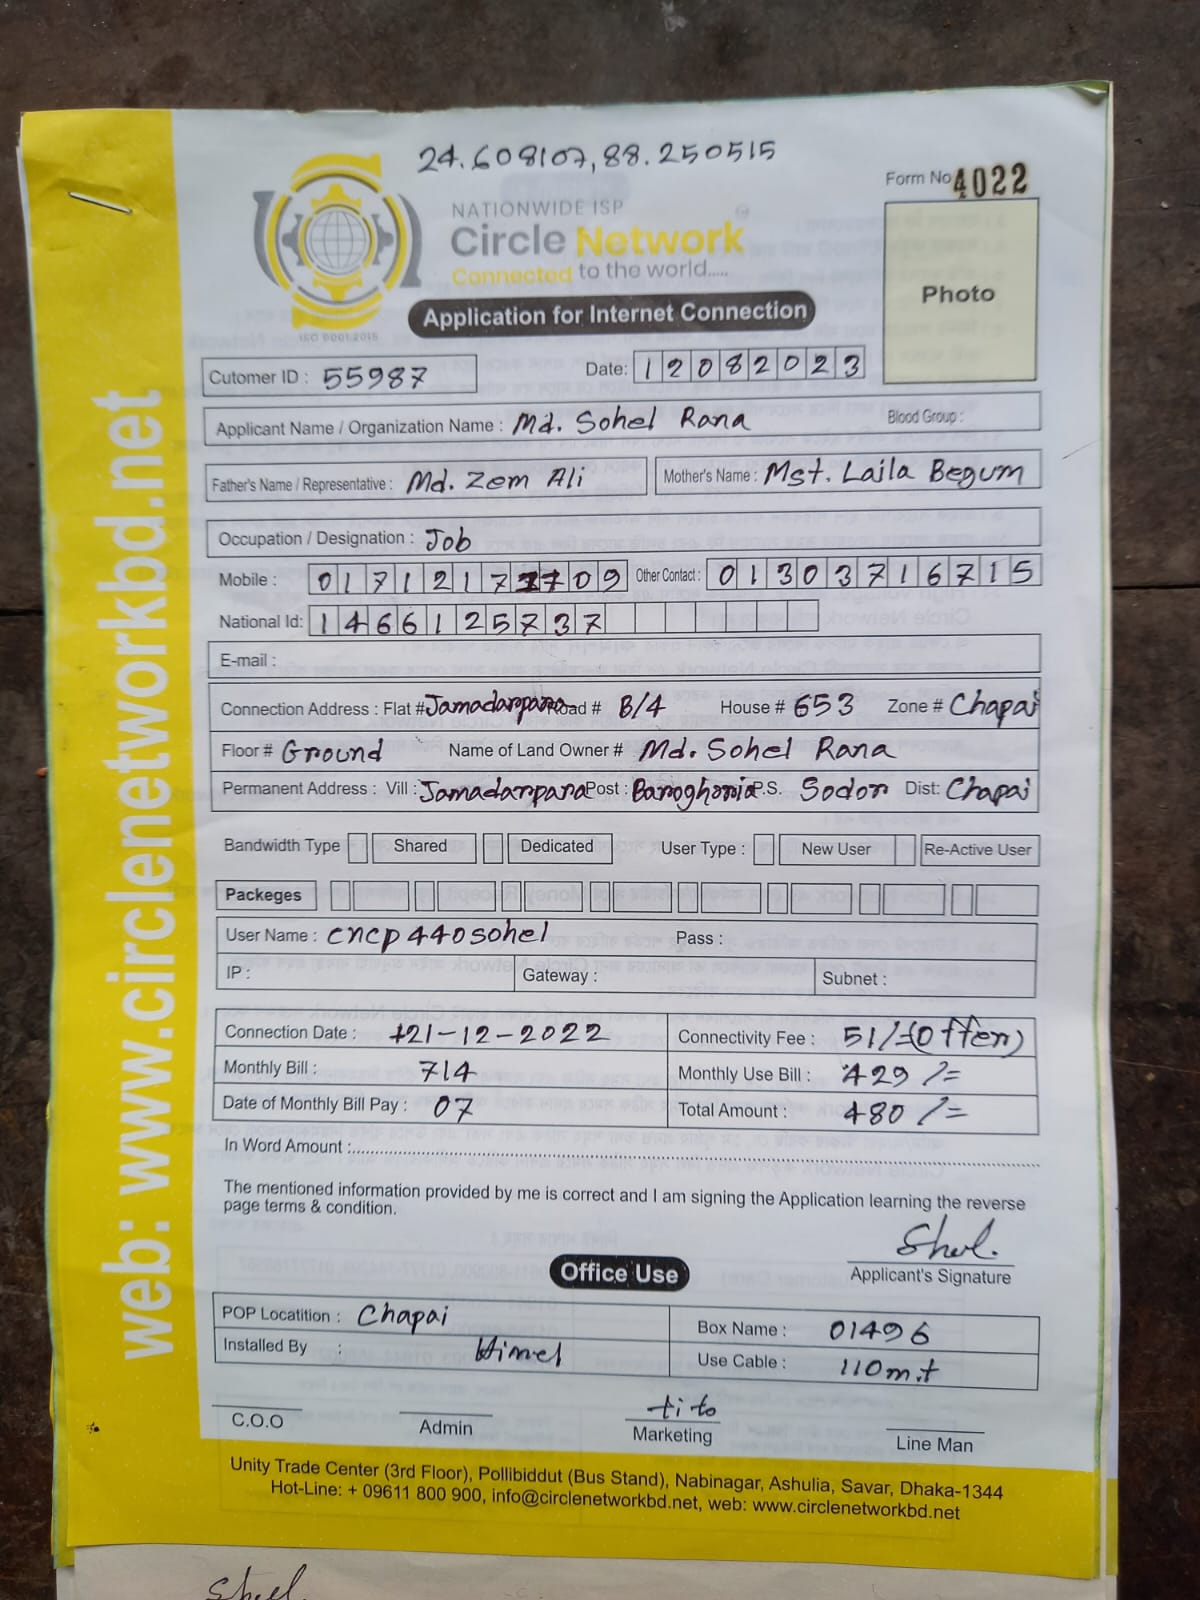 24.608107,88.250515
Form No 4022
NATIONWIDE ISP
Circle Network
Connected to the world.....
ISO 9001:2015
Photo
Application for Internet Connection
Cutomer ID : 55987
Date: 12082023
Applicant Name / Organization Name : Md. Sohel Rana Blood Group :
Father's Name / Representative : Md. Zem Ali Mother's Name : Mst. Laila Begum
Occupation / Designation : Job
Mobile : 01712177709 Other Contact : 01303716715
National Id: 1466125737
E-mail :
Connection Address : Flat # Jamadarpara Road # B/4 House # 653 Zone # Chapai
Floor # Ground Name of Land Owner # Md. Sohel Rana
Permanent Address : Vill : Jamadarpara Post : Baroghoria P.S. Sodor Dist: Chapai
Bandwidth Type Shared Dedicated User Type : New User Re-Active User
Packeges
User Name : cncp440sohel Pass :
IP : Gateway : Subnet :
Connection Date : 21-12-2022 Connectivity Fee : 51/=(Offer)
Monthly Bill : 714 Monthly Use Bill : 429/=
Date of Monthly Bill Pay : 07 Total Amount : 480/=
In Word Amount :
The mentioned information provided by me is correct and I am signing the Application learning the reverse
page terms & condition.
Applicant's Signature
Office Use
POP Locatition : Chapai Box Name : 01496
Installed By : Himel Use Cable : 110m.t
C.O.O Admin tito Marketing Line Man
Unity Trade Center (3rd Floor), Pollibiddut (Bus Stand), Nabinagar, Ashulia, Savar, Dhaka-1344
Hot-Line: + 09611 800 900, info@circlenetworkbd.net, web: www.circlenetworkbd.net
web: www.circlenetworkbd.net